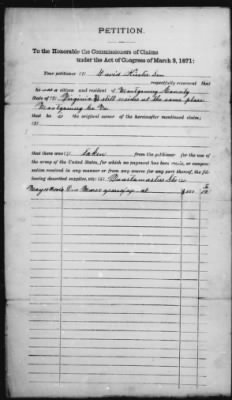 PETITION.
To the Honorable the Commissioners of Claims
under the Act of Congress of March 3, 1871:
Your petitioner (1) David
respectfully represent that
he was a citizen and resident of Montgomery County
State of (2) Virginia & still resides at the same place
Montgomery Co Va
that he is the original owner of the hereafter mentioned claim;
(3)
that there were (4) taken from the petitioner for the use of
the army of the United States, for which no payment has been made, or compen-
sation received in any manner or from any source for any part thereof, the fol-
lowing described supplies, viz: (5) Quartermaster
One Mare at